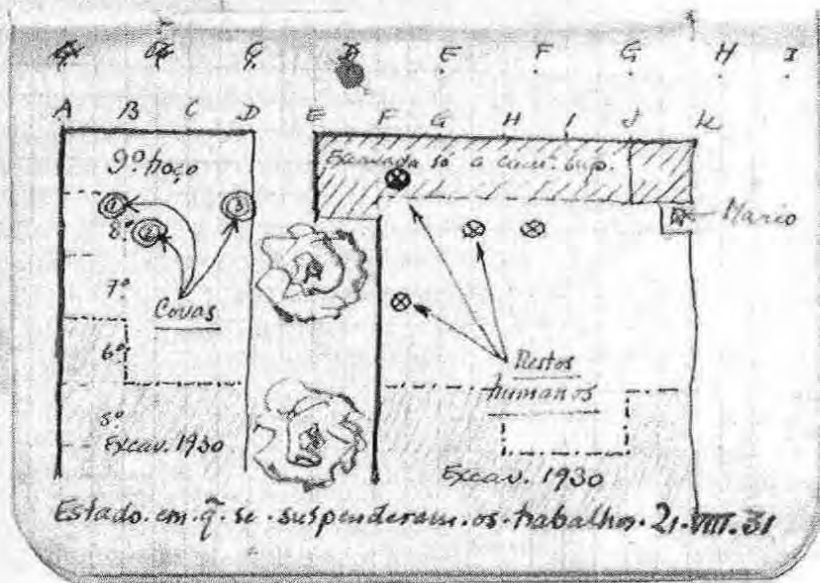 A B C D E F G H I
A B C D E F G H I J K
9º troço
Excavada só a cam.ª sup.
1 3
2
8º
Mario
7º
Covas
A
6º
Restos
humanos
5º
Excav. 1930
Excav. 1930
Estado.em.q̃.se.suspenderam.os.trabalhos.21.VIII.31